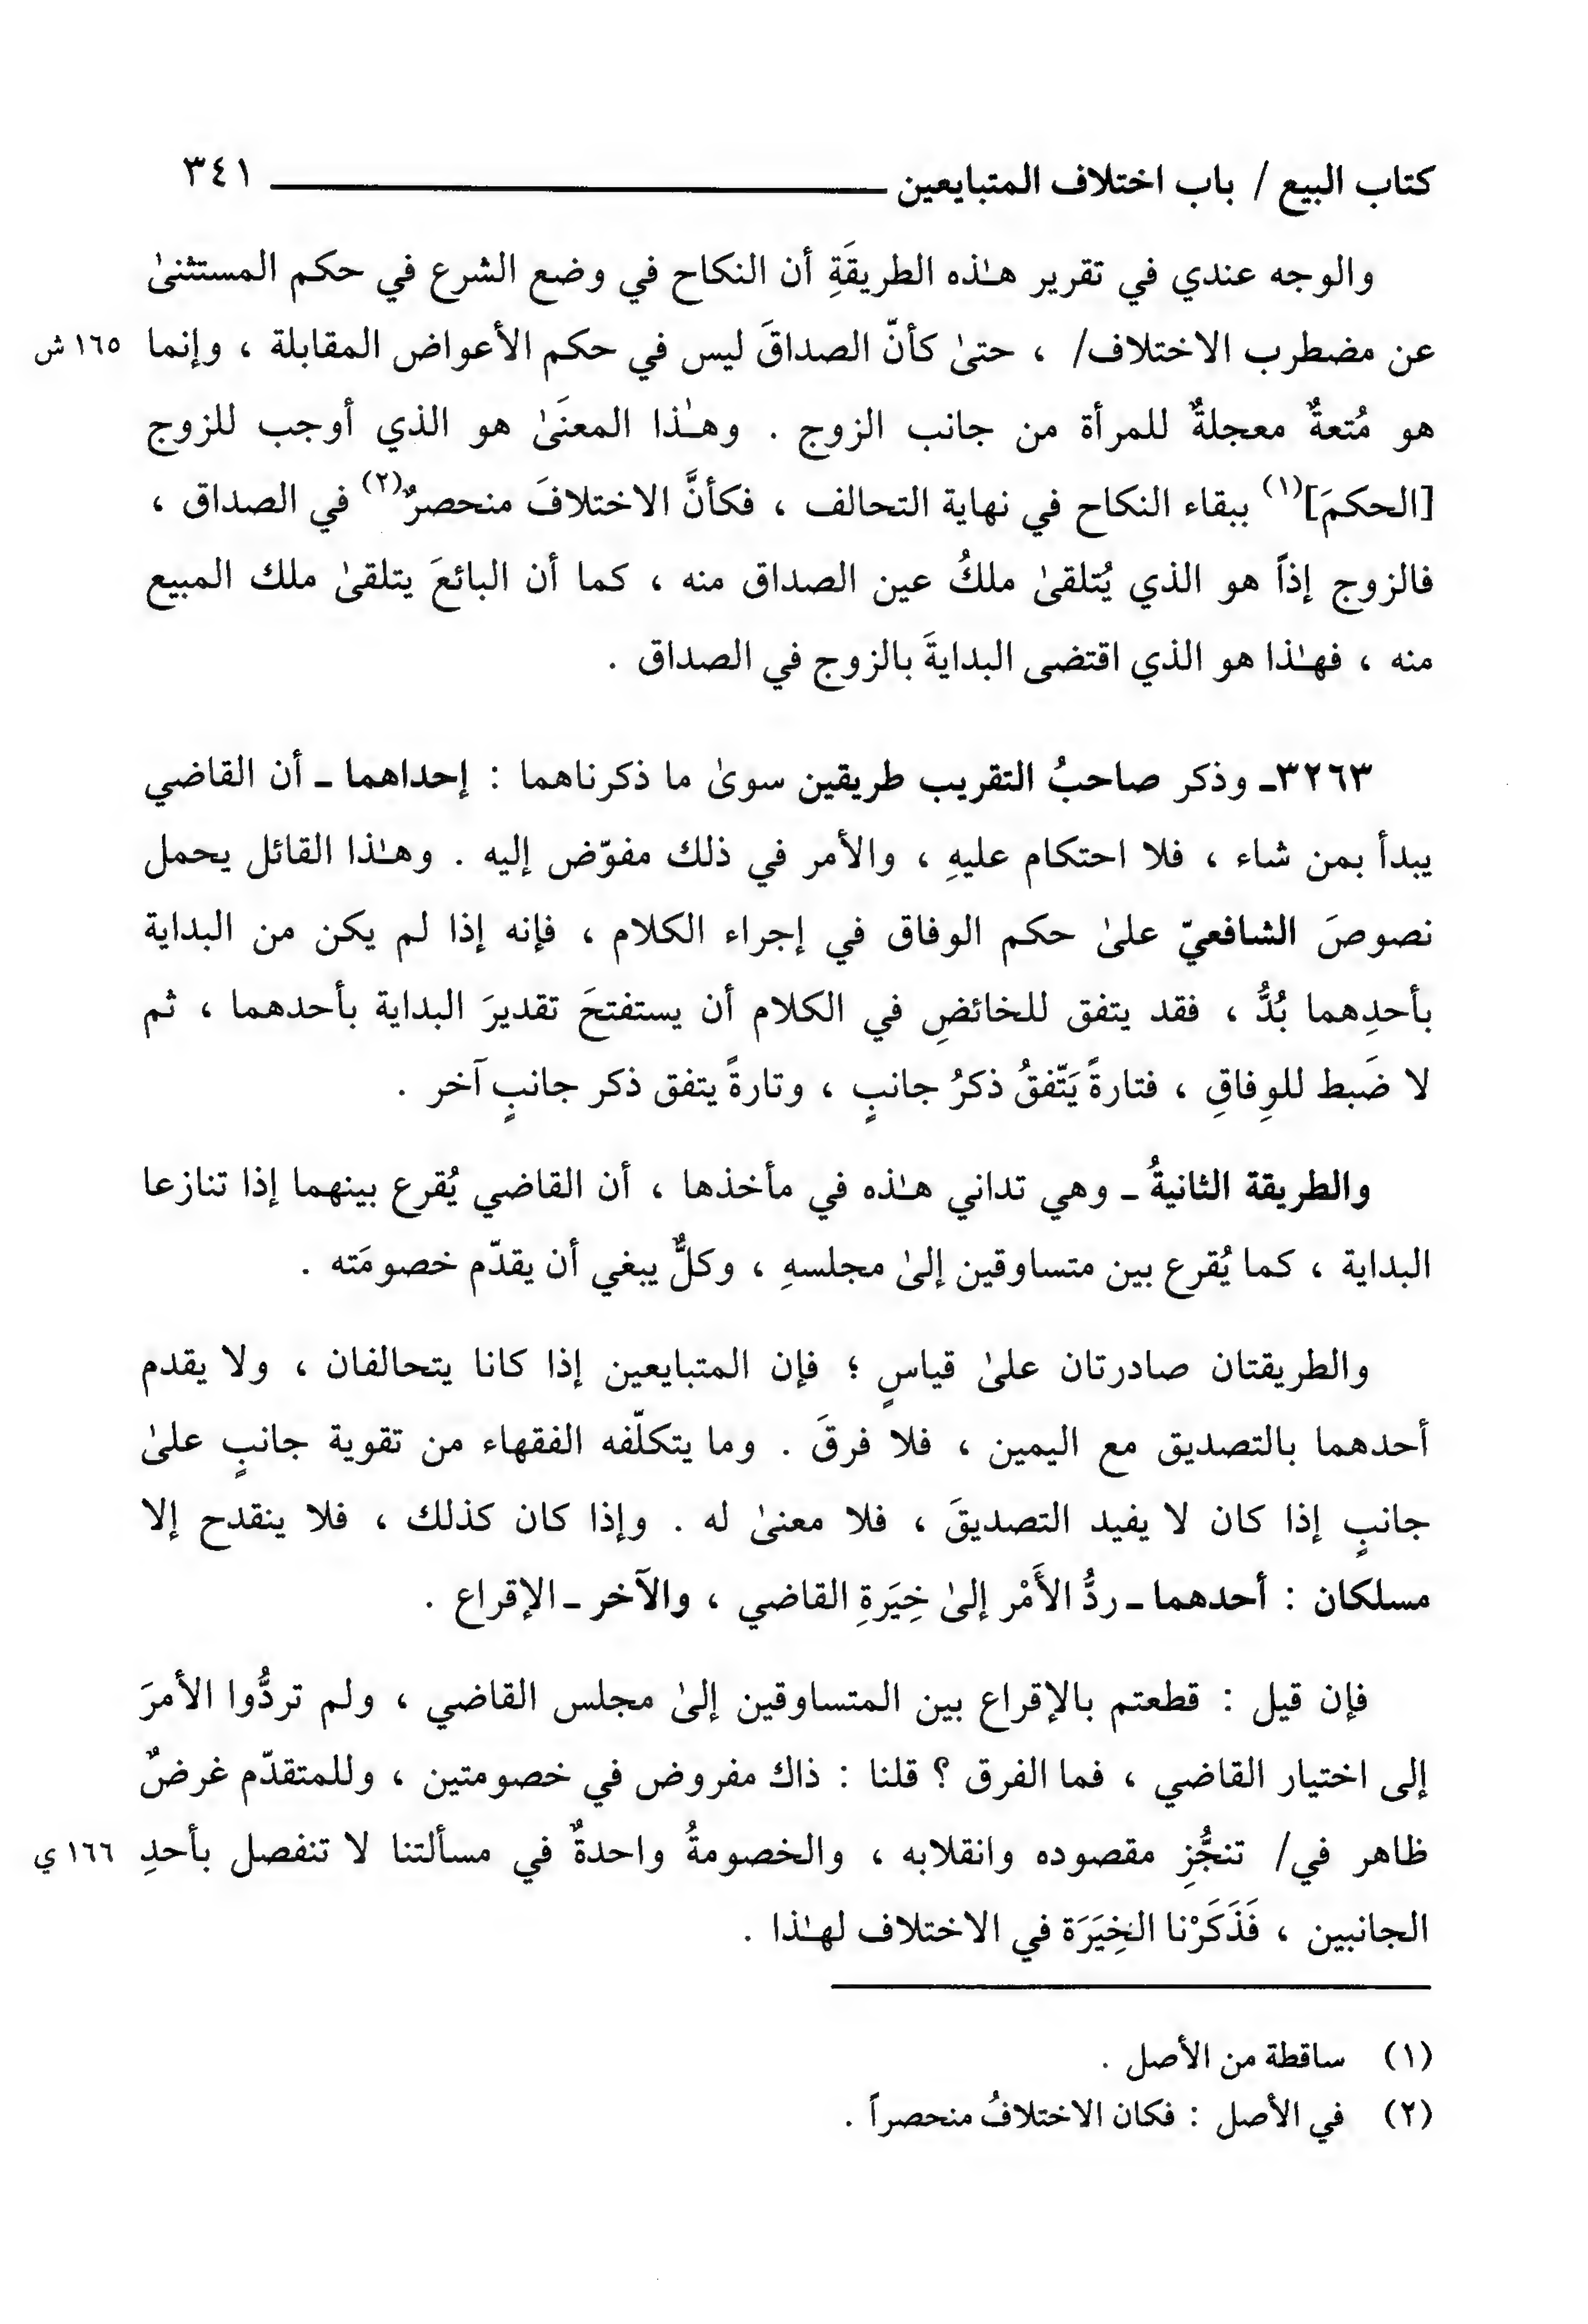 كتاب البيع / باب اختلاف المتبايعين ٣٤١
والوجه عندي في تقرير هـٰذه الطريقَةِ أن النكاح في وضع الشرع في حكم المستثنىٰ
عن مضطرب الاختلاف/ ، حتىٰ كأنّ الصداقَ ليس في حكم الأعواض المقابلة ، وإنما ١٦٥ ش
هو مُتعةٌ معجلةٌ للمرأة من جانب الزوج . وهـٰذا المعنَىٰ هو الذي أوجب للزوج
[الحكمَ](١) ببقاء النكاح في نهاية التحالف ، فكأنَّ الاختلافَ منحصرٌ(٢) في الصداق ،
فالزوج إذاً هو الذي يُتلقىٰ ملكُ عين الصداق منه ، كما أن البائعَ يتلقىٰ ملك المبيع
منه ، فهـٰذا هو الذي اقتضى البدايةَ بالزوج في الصداق .
٣٢٦٣ـ وذكر صاحبُ التقريب طريقين سوىٰ ما ذكرناهما : إحداهما ـ أن القاضي
يبدأ بمن شاء ، فلا احتكام عليهِ ، والأمر في ذلك مفوّض إليه . وهـٰذا القائل يحمل
نصوصَ الشافعيّ علىٰ حكم الوفاق في إجراء الكلام ، فإنه إذا لم يكن من البداية
بأحدِهما بُدٌّ ، فقد يتفق للخائضِ في الكلام أن يستفتحَ تقديرَ البداية بأحدهما ، ثم
لا ضَبط للوِفاقِ ، فتارةً يَتّفقُ ذكرُ جانبٍ ، وتارةً يتفق ذكر جانبٍ آخر .
والطريقة الثانيةُ ـ وهي تداني هـٰذه في مأخذها ، أن القاضي يُقرع بينهما إذا تنازعا
البداية ، كما يُقرع بين متساوقين إلىٰ مجلسهِ ، وكلٌّ يبغي أن يقدّم خصومَته .
والطريقتان صادرتان علىٰ قياسٍ ؛ فإن المتبايعين إذا كانا يتحالفان ، ولا يقدم
أحدهما بالتصديق مع اليمين ، فلا فرقَ . وما يتكلّفه الفقهاء من تقوية جانبٍ علىٰ
جانبٍ إذا كان لا يفيد التصديقَ ، فلا معنىٰ له . وإذا كان كذلك ، فلا ينقدح إلا
مسلكان : أحدهما ـ ردُّ الأَمْر إلىٰ خِيَرةِ القاضي ، والآخر ـ الإقراع .
فإن قيل : قطعتم بالإقراع بين المتساوقين إلىٰ مجلس القاضي ، ولم تردُّوا الأمرَ
إلى اختيار القاضي ، فما الفرق ؟ قلنا : ذاك مفروض في خصومتين ، وللمتقدّم غرضٌ
ظاهر في/ تنجُّزِ مقصوده وانقلابه ، والخصومةُ واحدةٌ في مسألتنا لا تنفصل بأحدِ ١٦٦ ي
الجانبين ، فَذَكَرْنا الخِيَرَة في الاختلاف لهـٰذا .
(١) ساقطة من الأصل .
(٢) في الأصل : فكان الاختلافُ منحصراً .